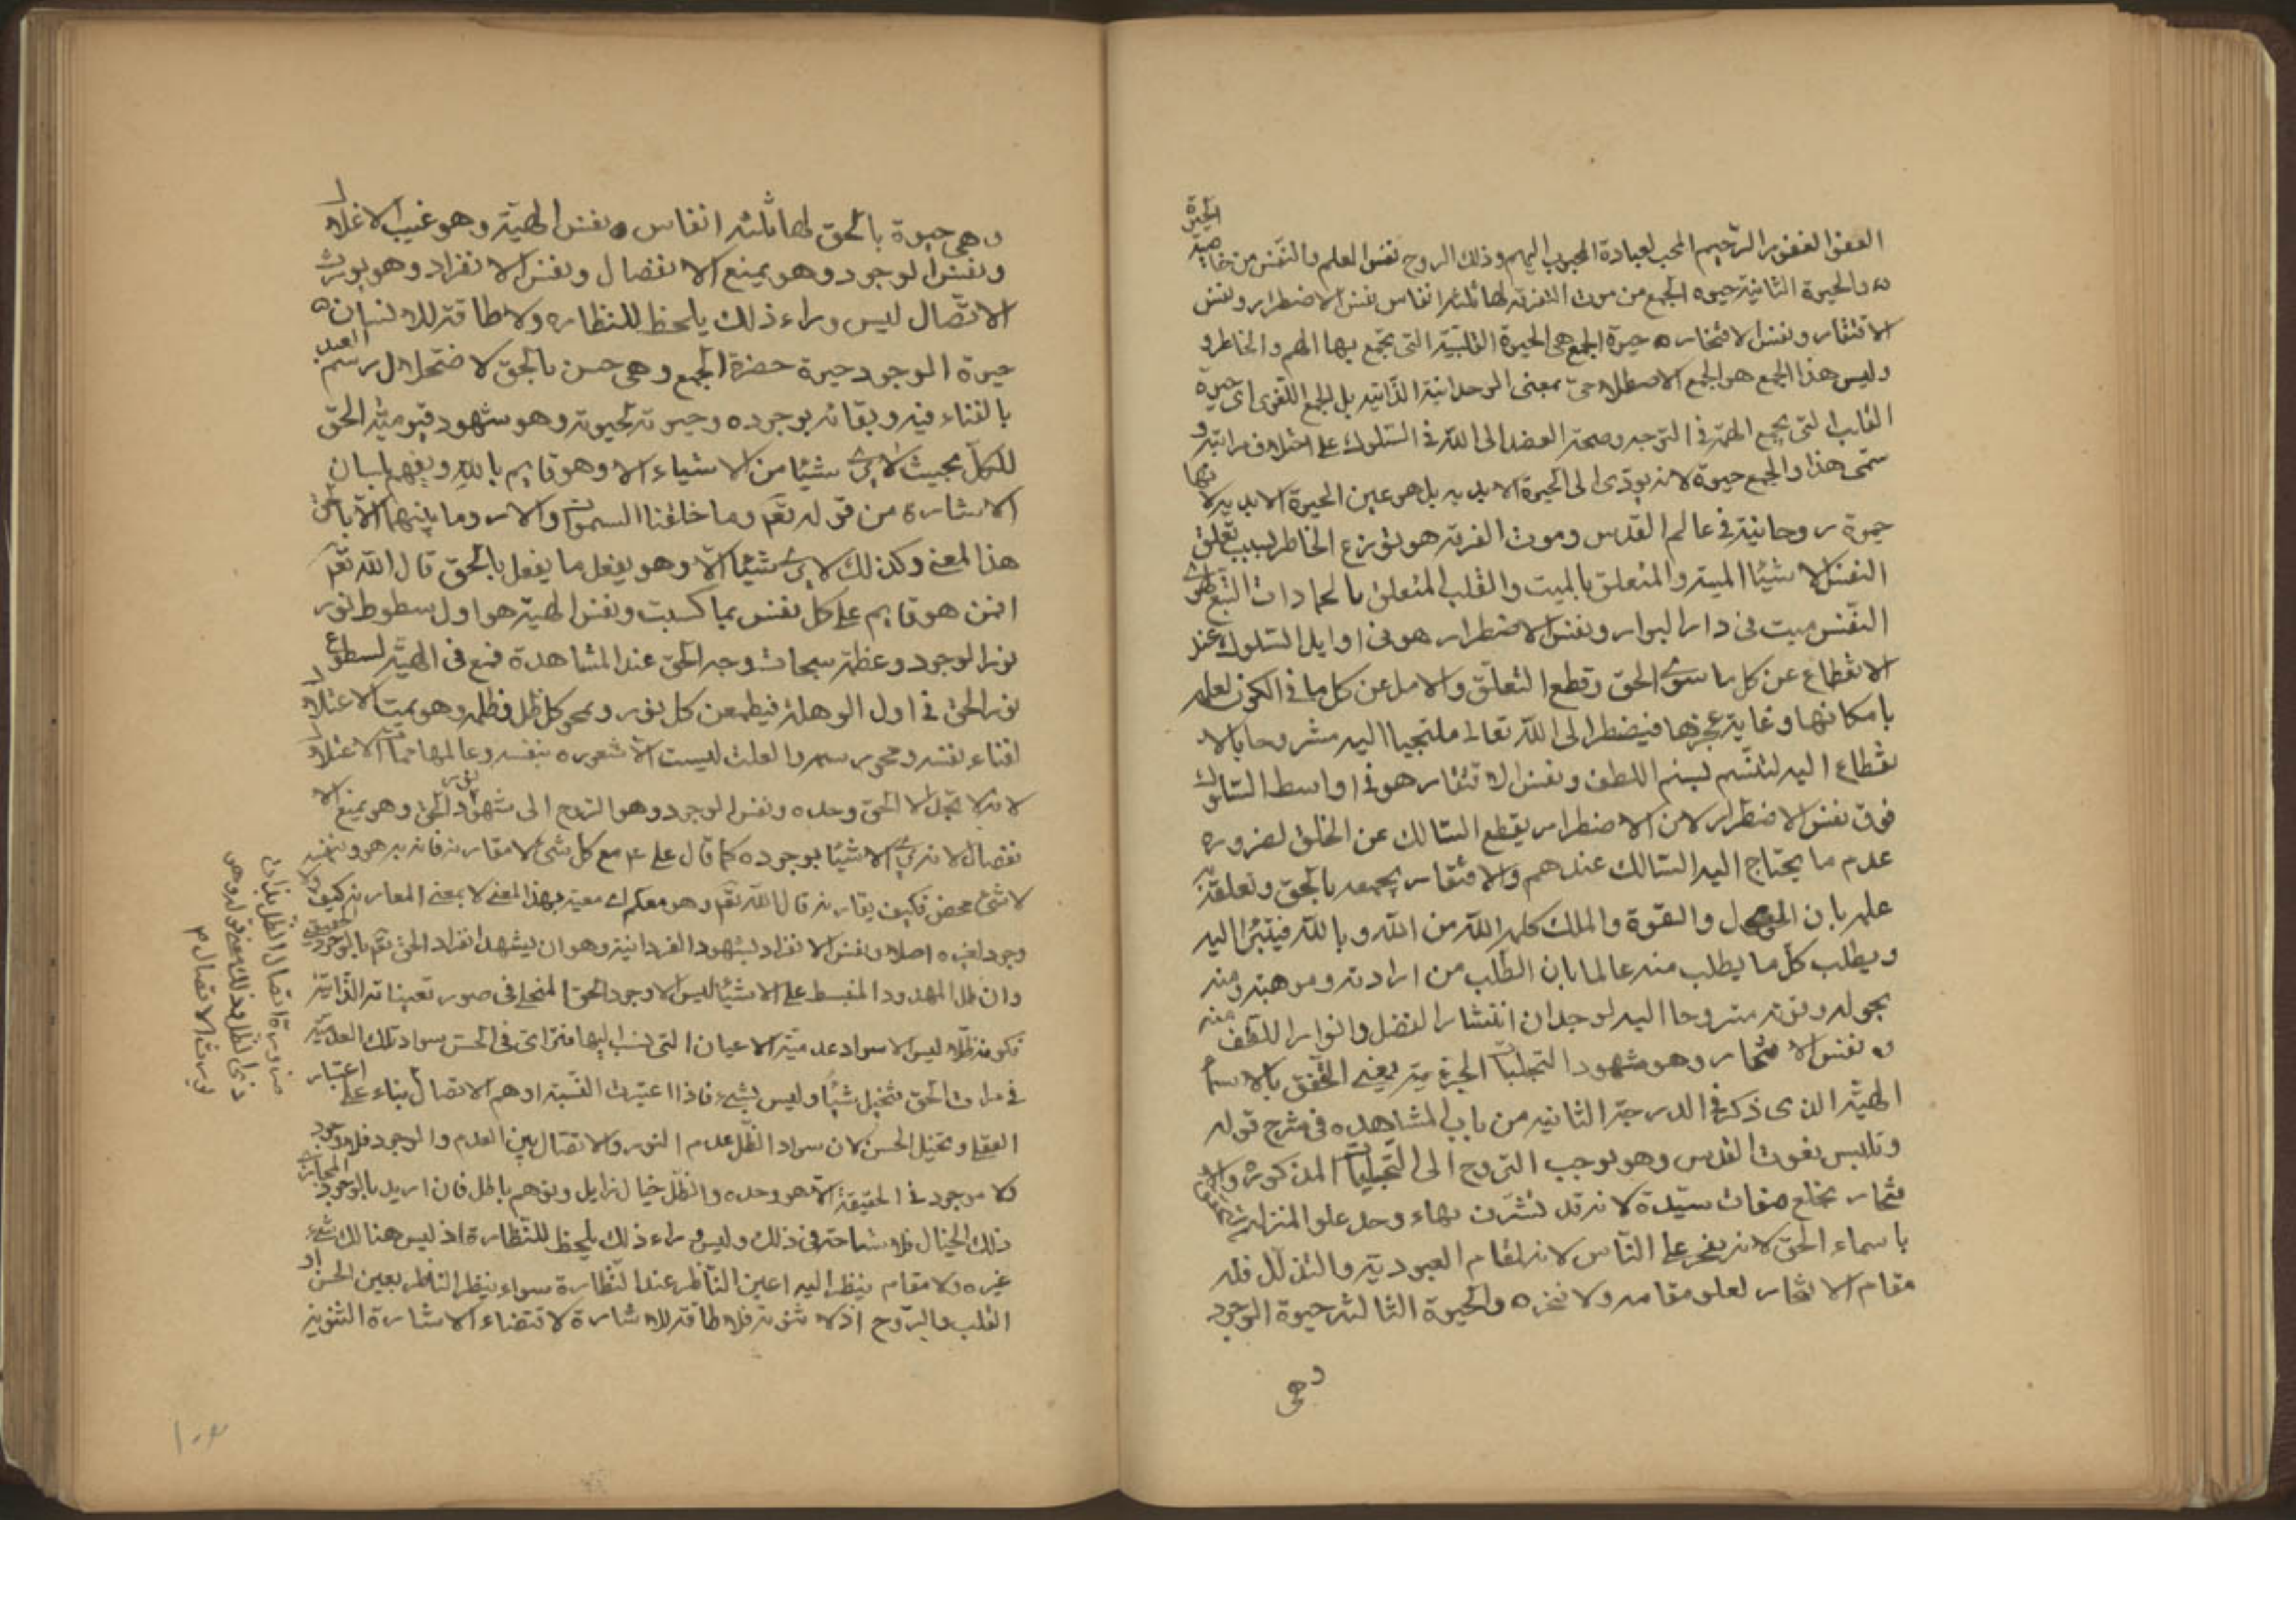 العفو الغفور الرحيم المحب لعبادة المحبوب اليهم وذلك الروح نفس العلم والنفس من خاصية الحيوة
والحيوة الثانية حيوة الجمع من موت التفرقة لها ثلثة انفاس نفس الاضطرار ونفس
الافتقار ونفس الافتخار حيوة الجمع هي الحيوة القلبية التي تجمع بها الهم والخاطر و
وليس هذا الجمع هو الجمع الاصطلاحي بمعنى الوحدانية الذاتية بل الجمع اللغوى اى حيوة
القلب التي بجمع الهمة في التوجه وصحة القصد الى الله في السلوك على اختلاف مراتبه و
سمى هذا والجمع حيوة لانه يودى الى الحيوة الابدية بل هو عين الحيوة الابدية لانها
حيوة روحانية في عالم القدس وموت الفرقة هو توزع الخاطر بسبب تعلق
النفس لا شيئا الميتة والمتعلق بالميت والقلب المتعلق بالجمادات التبع
النفس ميت في دار البوار ونفس الاضطرار هو فى اوايل السلوك عند
الانقطاع عن كل ما سوى الحق وقطع التعلق والامل عن كل ما في الكون لعلمه
بامكانها وغاية عجزها فيضطر الى الله تعالى ملتجيا اليه مشروحا بالا
نقطاع اليه لتنسم نسيم اللطف ونفس الافتقار هو في اواسط السلوك
فوق نفس الاضطرار لان الاضطرار يقطع السالك عن الخلق لضرورة
عدم ما يحتاج اليه السالك عندهم والافتقار يجمعه بالحق وتعلقه به
علمه بان الحول والقوة والملك كله لله من الله وبالله فيتبرأ اليه
ويطلب كل ما يطلب منه عالما بان الطلب من ارادته وموهبته ومنه
بحوله وقوته متروحا اليه لوجدان انتشار الفضل وانوار اللطف منه
ونفس الافتخار وهو شهود التجليات الجزئية يعنى التحقق بالاسماء
الهية الذى ذكر في الدرجة الثانيه من باب المشاهده في شرح قوله
وتلبس نعوت القدس وهو يوجب التروح الى التجليات المذكورة والا
فتخار بخلع صفات سيده لانه قد تشرف بهاء وحد علو المنزلة
باسماء الحق لانه يفخر على الناس لانه لمقام العبودية والتذلل فله
مقام الافتخار لعلو مقامه ولا فخره والحيوة الثالثة حيوة الوجود
وهى
وهى حيوة بالحق لها ثلثة انفاس نفس الهيبة وهو غيب الاعتلال
ونفس الوجود وهو يمنع الانفصال ونفس الانفراد وهو يورث
الاتصال ليس وراء ذلك يلحظ للنظاره ولا طاقة للانسان
حيوة الوجود حيوة حضرة الجمع وهى حسن بالحق لاضمحلال رسم العبد
بالفناء فيه وبقائه بوجوده وحيوته بحيوته وهو شهود قيومية الحق
للكل بحيث لا يرى شيئا من الاشياء الا وهو قايم بالله ويفهم بلسان
الاشارة من قوله تعم وما خلقنا السموات والارض وما بينهما الا بالحق
هذا المعنى وكذلك لا يرى شيئا الا وهو يفعل ما يفعل بالحق قال الله تعم
افمن هو قايم على كل نفس بما كسبت ونفس الهيبة هو اول سطوع نور
نور الوجود وعظمة سبحات وجه الحق عند المشاهدة فيقع فى الهيبة لسطوع
نور الحق في اول الوهلة فيطمعن كل نور ويمحو كل ظل وظلمة وهو يميت الاعتلال
لفناء نفسه ومحو رسمه والعلة ليست الا شعوره بنفسه وعالمها فمات الاعتلال
لانه لا تجلى الا الحق وحده ونفس الوجود وهو التروح الى شهود نور الحق وهو يمنع الا
نفصال لانه يرى الاشيئا بوجوده كما قال علي ع مع كل شئ لا بمقارنة فانه به هو وبنفسه
لا شئ محض فكيف يقارنه قال الله تعم وهو معكم اى معية بهذا المعنى لا بمعنى المقارنة كيف ولا
وجود لغيره اصلا ونفس الانفراد بشهود الفردانية وهو ان يشهد انفراد الحق تعم بالوجود الحقيقى
وان ظل الممدود المنبسط على الاشيئا ليس الا وجود الحق المتجلى فى صور تعيناته الذاتية
فكونه ظلا ليس الا سواد عدمية الاعيان التى نسب اليها فتراى فى الحس سواد تلك العدمية
في مرات الحق فتخيل شيئا وليس بشيء فاذا اعتبرت النسبة اوهم الاتصال بناء على اعتبار
العقل وتخيل الحس لان سواد الظل عدم النور والاتصال بين العدم والوجود فلا وجود
ولا موجود في الحقيقة الا هو وحده والظل خيال زايل وتوهم باطل فان اريد بالوجود المجازى
ذلك الخيال فلا مشاحة فى ذلك وليس وراء ذلك ملحظ للنظارة اذ ليس هنالك شيء
غيره ولا مقام ينظر اليه اعين الناظر عند النظارة سواء ينظر الناظر بعين الحس او
القلب والروح اذ لا ثنوية فلا طاقة للاشارة لاقتضاء الاشارة التثنوية
ضرورة اتصال الظل بذات
ذى الظل فذلك معنى قوله وهو
يورث الاتصال م